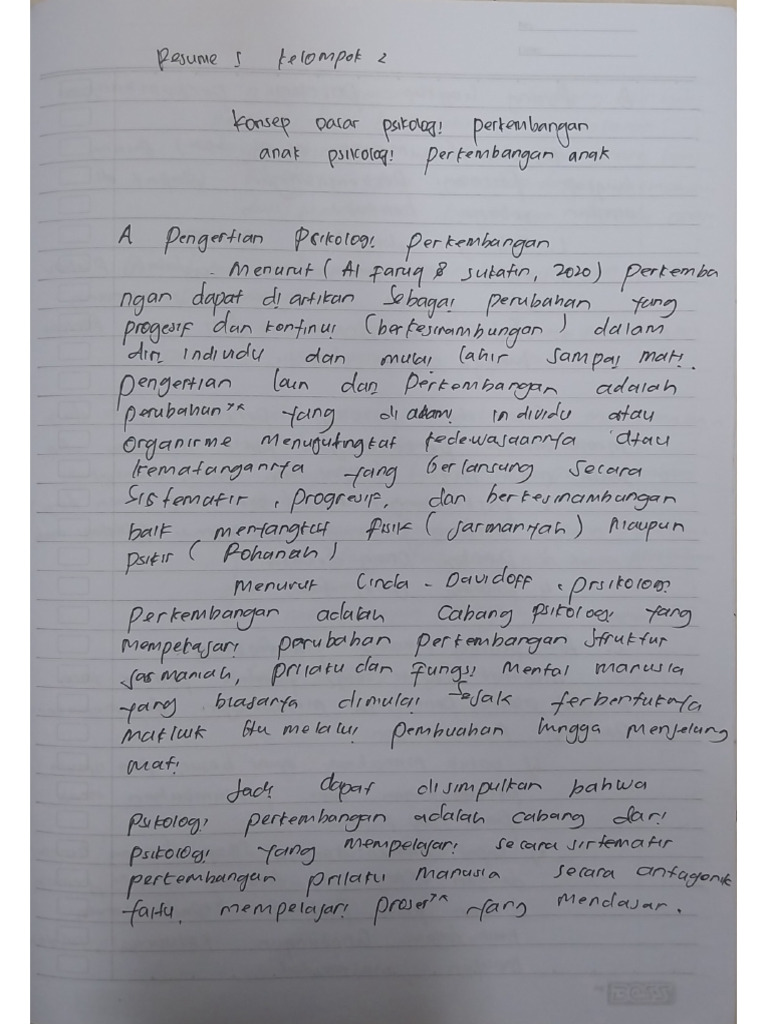 Resume 5 kelompok 2
Konsep Dasar psikologi perkembangan
anak psikologi perkembangan anak
A Pengertian Psikologi perkembangan
Menurut (Al faruq & sukatin, 2020) perkemba
ngan dapat di artikan sebagai perubahan yang
progesif dan kontinui (berkesinambungan) dalam
diri individu dan mulai lahir sampai mati.
pengertian lain dan Perkembangan adalah
perubahan" yang di alami individu atau
organisme menuju tingkat kedewasaannya atau
kematangannya yang berlansung secara
Sistematis, progresif, dan berkesinambungan
baik menyangkut fisik (jasmanyah) maupun
psikis (Rohanah)
Menurut Linda - Davidoff, psikologi
perkembangan adalah cabang psikologi yang
mempelajari perubahan perkembangan struktur
jasmaniah, prilaku dan fungsi mental manusia
yang biasanya dimulai sejak terbentuknya
makluk itu melalui pembuahan hingga menjelang
mati
Jadi dapat disimpulkan bahwa
psikologi perkembangan adalah cabang dari
psikologi yang mempelajari secara sistematis
perkembangan prilaku manusia secara antagonik
yaitu, mempelajari proses" yang mendasar.